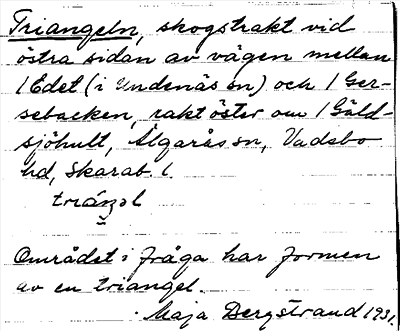 Triangeln, skogstrakt vid
östra sidan av vägen mellan
/Edet (i Undenäs sn) och /Ger-
sebacken, rakt öster om /Gäld-
sjöhult, Älgarås sn, Vadsbo
hd, Skarab. l.
Området i fråga har formen
av en triangel.
Maja Bergstrand 1931.